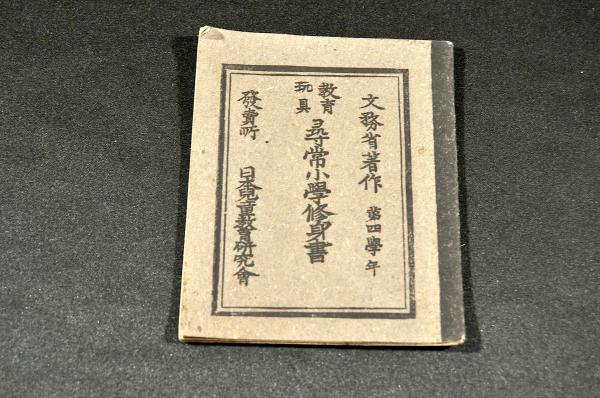 文務省著作 第四學年
教育玩具 尋常小學修身書
發賣所 日本兒童教育研究會